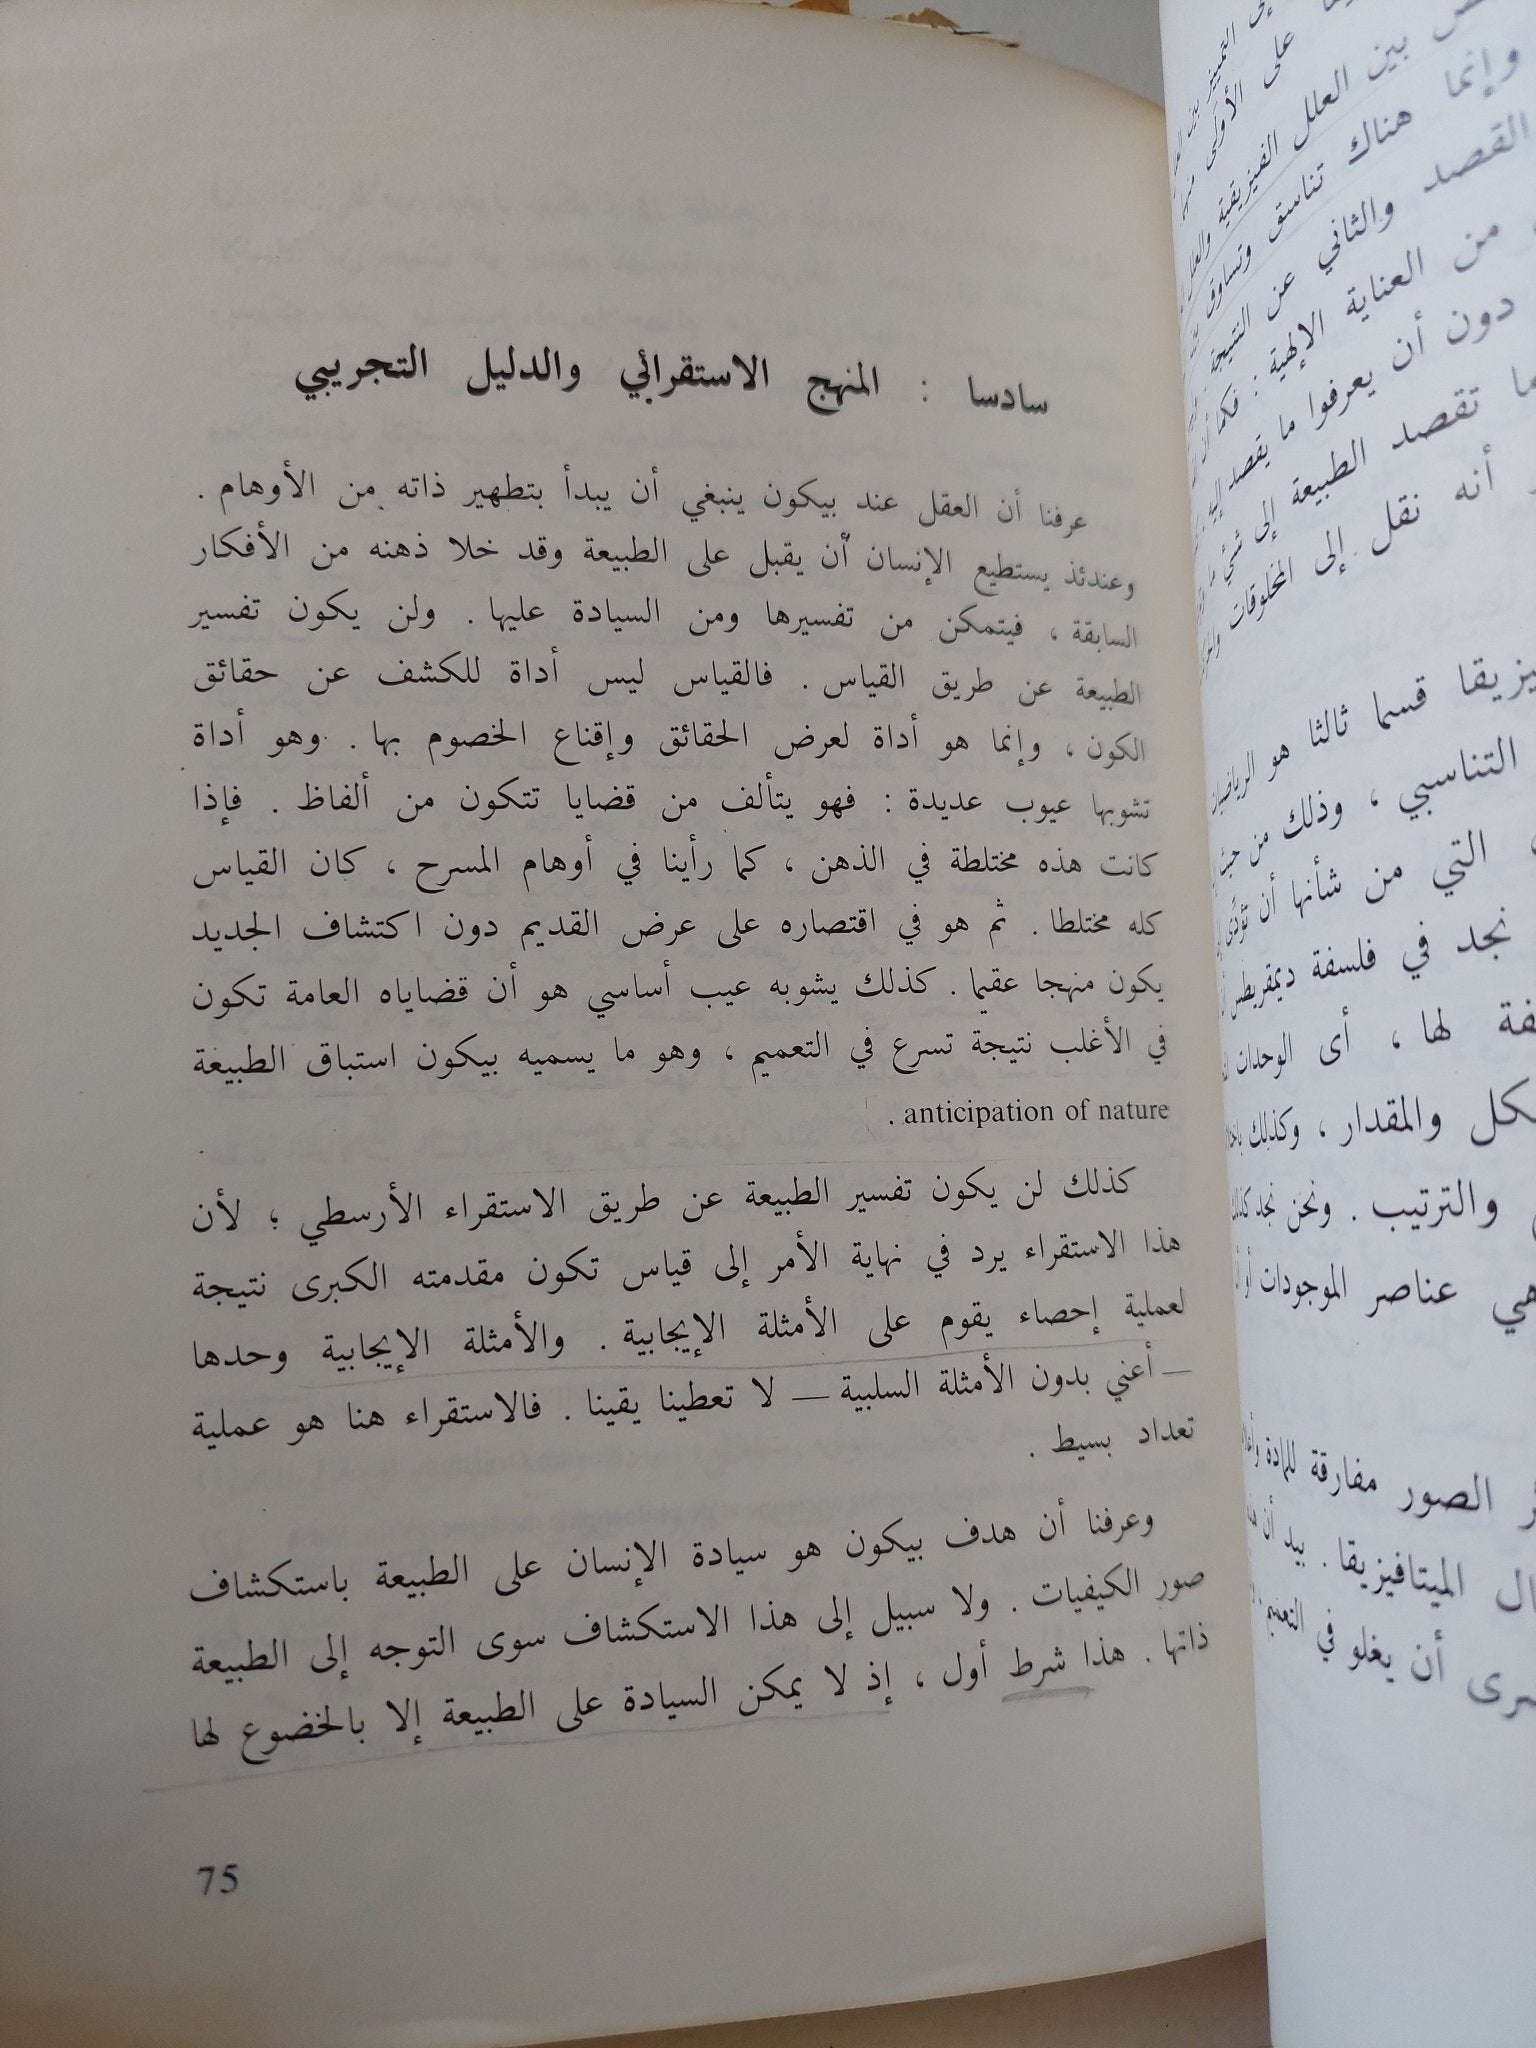 سادسا : المنهج الاستقرائي والدليل التجريبي
عرفنا أن العقل عند بيكون ينبغي أن يبدأ بتطهير ذاته من الأوهام .
وعندئذ يستطيع الإنسان أن يقبل على الطبيعة وقد خلا ذهنه من الأفكار
السابقة ، فيتمكن من تفسيرها ومن السيادة عليها . ولن يكون تفسير
الطبيعة عن طريق القياس . فالقياس ليس أداة للكشف عن حقائق
الكون ، وإنما هو أداة لعرض الحقائق وإقناع الخصوم بها . وهو أداة
تشوبها عيوب عديدة : فهو يتألف من قضايا تتكون من ألفاظ . فإذا
كانت هذه مختلطة في الذهن ، كما رأينا في أوهام المسرح ، كان القياس
كله مختلطا . ثم هو في اقتصاره على عرض القديم دون اكتشاف الجديد
يكون منهجا عقيما . كذلك يشوبه عيب أساسي هو أن قضاياه العامة تكون
في الأغلب نتيجة تسرع في التعميم ، وهو ما يسميه بيكون استباق الطبيعة
anticipation of nature .
كذلك لن يكون تفسير الطبيعة عن طريق الاستقراء الأرسطي ؛ لأن
هذا الاستقراء يرد في نهاية الأمر إلى قياس تكون مقدمته الكبرى نتيجة
لعملية إحصاء يقوم على الأمثلة الإيجابية . والأمثلة الإيجابية وحدها
— أعني بدون الأمثلة السلبية — لا تعطينا يقينا . فالاستقراء هنا هو عملية
تعداد بسيط .
وعرفنا أن هدف بيكون هو سيادة الإنسان على الطبيعة باستكشاف
صور الكيفيات . ولا سبيل إلى هذا الاستكشاف سوى التوجه إلى الطبيعة
ذاتها . هذا شرط أول ، إذ لا يمكن السيادة على الطبيعة إلا بالخضوع لها
75
على الأولى
بين العلل الفيزيقية
وإنما هناك تناسق وتساوق
القصد والثاني عن النتيجة
من العناية الإلهية : فكما أن
دون أن يعرفوا ما يقصد إليه
تقصد الطبيعة إلى شئ ما
أنه نقل إلى المخلوقات
قسما ثالثا هو الرياضيات
التناسبي ، وذلك من حيث
التي من شأنها أن تؤدى
نجد في فلسفة ديمقريطس
لها ، أى الوحدات
والمقدار ، وكذلك
والترتيب . ونحن نجد كذلك
هي عناصر الموجودات أو
الصور مفارقة للمادة
الميتافيزيقا . بيد أن
أن يغلو في التعميم